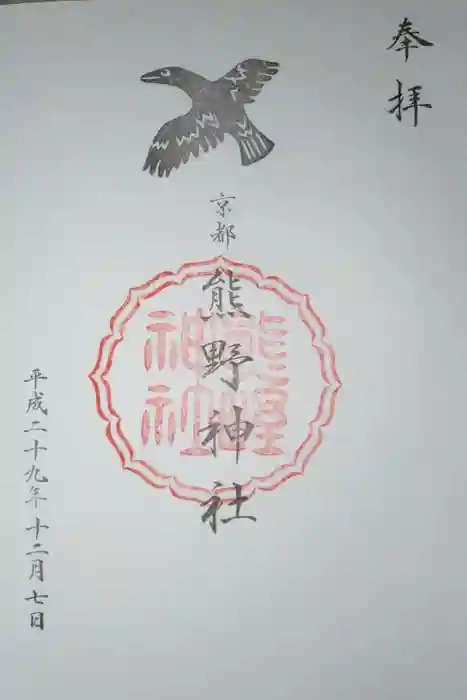 奉拝
京都
熊野神社
熊野神社
平成二十九年十二月七日